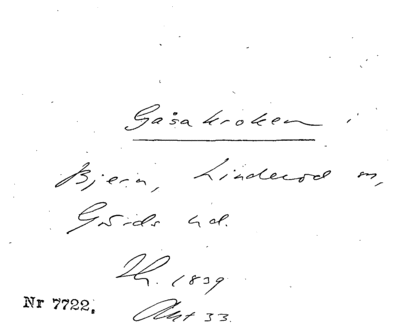 Gåsakroken i
Bjern, Linderod sn,
Gärds hd.
Th. 1839
Akt 33.
Nr 7722.